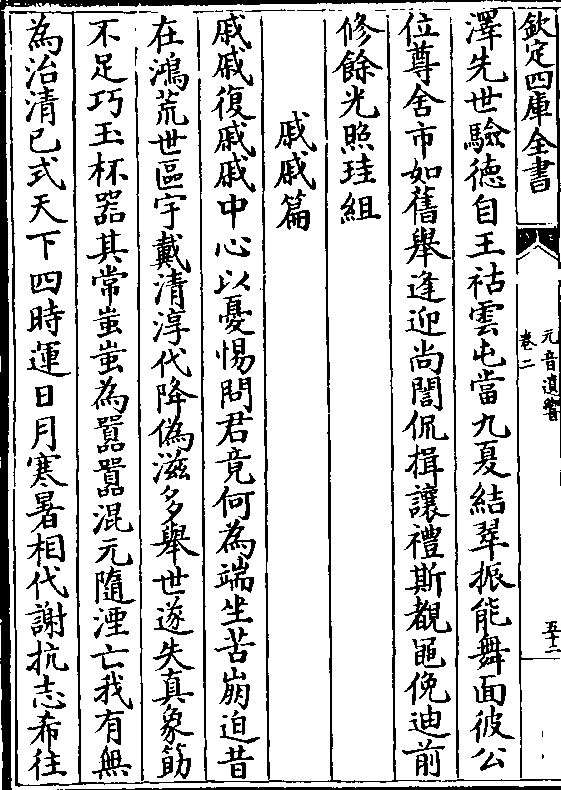 欽定四庫全書
元音遺響
卷二
五十二
澤先世驗德自王祜雲屯當九夏結翠振能舞面彼公
位尊舍市如舊舉逢迎尚誾侃揖讓禮斯覩黽俛迪前
修餘光照珪組
戚戚篇
戚戚復戚戚中心以憂惕問君竟何為端坐苦崩迫昔
在鴻荒世區宇戴清淳代降偽滋多舉世遂失真象筯
不足巧玉杯器其常蚩蚩為囂囂混元隨湮亡我有無
為治清已式天下四時運日月寒暑相代謝抗志希往